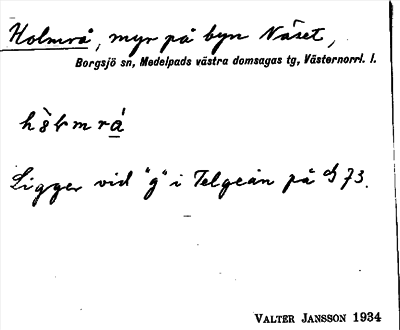 Holmrå, myr på byn Näset,
Borgsjö sn, Medelpads västra domsagas tg, Västernorrl. l.
Ligger vid "g" i Telgeån på 73.
VALTER JANSSON 1934